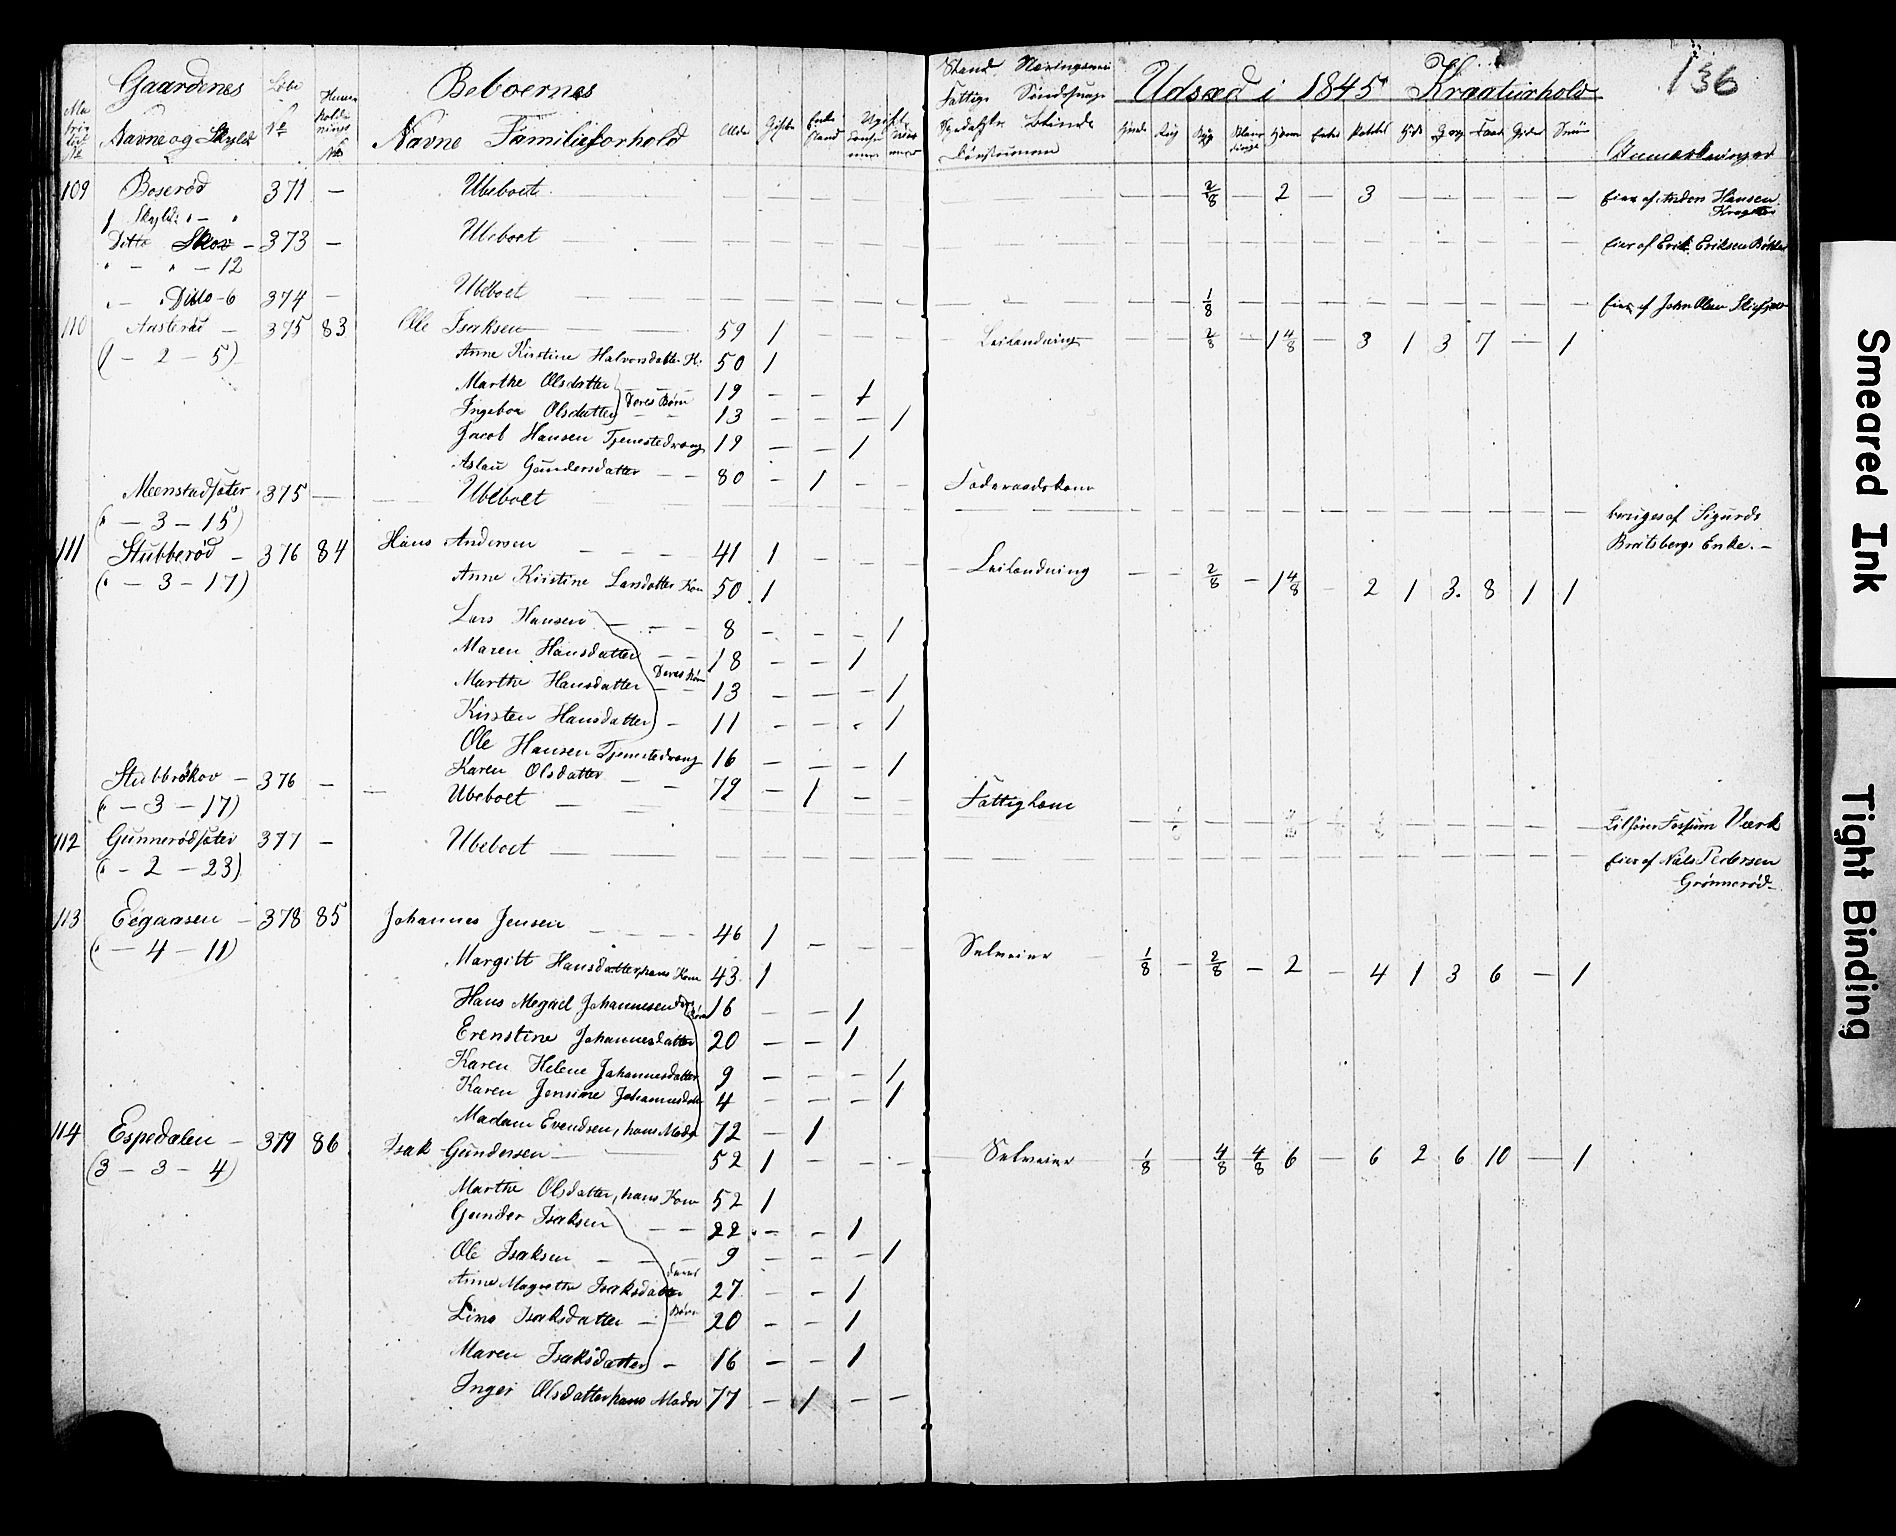 Gaardenes Løbe № Beboernes Stand Næringsvei Udsæd i 1845 Kreaturhold 136
Navne og Skyld Navne Familieforhold Alder Gifte Anmærkninger
109 Boserød 371 — Ubeboet — — 2/8 — 2 — 3 — — — — — Eier af Anders Hansen
Skyld
Ditto Skov — 373 — Ubeboet Eier af Erik Eriksen
" — " — 12
" — " Ditto — 6 374 — Ubeboet — — 1/8 — — — — — — — — — Eier af John Olsen
110 Aasterød — 375 83 Ole Isaksen 59 1 — — — Leilændning — — 2/8 — 1 4/8 — 3 1 3 7 — 1
( — 2 — 5) Anne Kirstine Halvorsdatter K: 50 1
Marthe Olsdatter 19 — — 1
Deres Børn
Ingebor Olsdatter 13 — — — 1
Jacob Hansen Tjenestedreng 19 — — 1
Aslau Gundersdatter — — 80 — 1 — — Føderaadskone
Meenstadsæter 375 — Ubeboet bruges af Sigurds
( — 3 — 15) Bratsbergs Enke. —
111 Stubberød — 376 84 Hans Andersen 41 1 — — — Leilændning — — 2/8 — 1 4/8 — 2 1 3. 8 1 1
( — 3 — 17) Anne Kirstine Larsdatter Kone 50 1
Lars Hansen 8 — — — 1
Maren Hansdatter 18 — — 1
Deres Børn
Marthe Hansdatter 13 — — — 1
Kirsten Hansdatter — 11 — — . 1
Ole Hansen Tjenestedreng 16 — — — 1
Karen Olsdatter — — 79 — 1 — — Fattiglem
Stubbrøkov — 376 — Ubeboet — — Tilhører Fossum Værk
( — 3 — 17)
112 Gunnerødsæter 377 — Ubeboet Eier af Niels Pedersen
( — 2 — 23) Grønnerød
113 Eegaasen — 378 85 Johannes Jensen 46 1 — — — Selveier 1/8 — 2/8 — 2 — 4 1 3 6 — 1
( — 4 — 11) Margitt Hansdatter, hans Kone 43 1
Hans Megael Johannesen 16 — — 1
Erenstine Johannesdatter 20 — — 1
Karen Helene Johannesdatter 9 — — — 1
Karen Jensine Johannesdatter 4 — — — 1
Madam Evendsen, hans Moder 72 — 1
114 Espedalen — 379 86 Isak Gundersen 52 1 — — — Selveier 1/8 — 4/8 4/8 6 — 6 2 6 10 — 1
(3 — 3 — 4) Marthe Olsdatter, hans Kone 52 1
Gunder Isaksen 22 — — 1
Ole Isaksen 9 — — — 1
Deres
Anne Magrethe Isaksdatter 27 — — 1
Børn
Lina Isaksdatter 20 — — 1
Maren Isaksdatter — 16 — — 1
Inger Olsdatter hans Moder 77 — 1 — —
Smeared Ink
Tight Binding